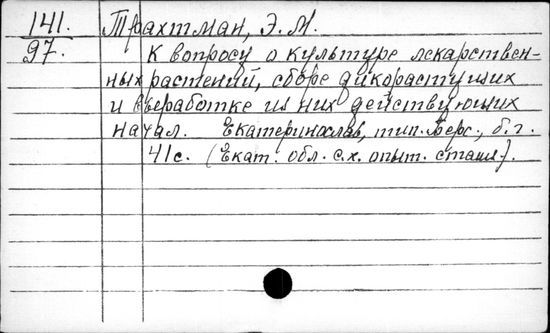 141. Трахтман, Э. М.
97. К вопросу о культуре лекарствен-
ных растений, сборе дикорастущих
и выработке из них действующих
начал. Екатеринослав, тип. Берс., б. г.
41 с. (Екат. обл. с.х. опыт. станц.).